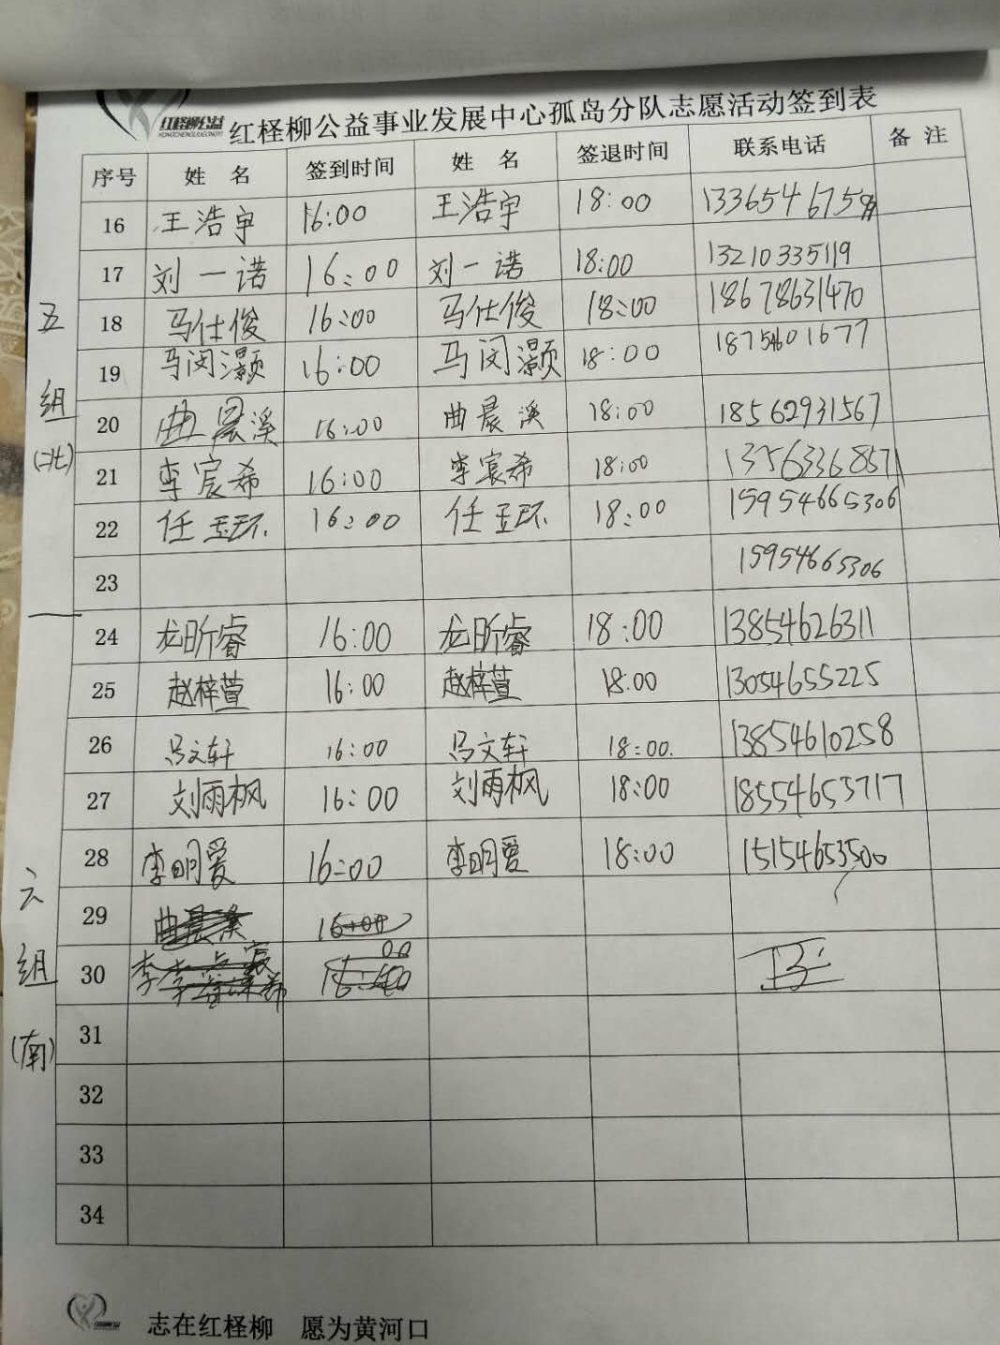 红柽柳公益
红柽柳公益事业发展中心孤岛分队志愿活动签到表
序号 姓 名 签到时间 姓 名 签退时间 联系电话 备 注
16 王浩宇 16:00 王浩宇 18:00
17 刘一诺 16:00 刘一诺 18:00 13210335119
18 马仕俊 16:00 马仕俊 18:00 18678631470
五组(北)
19 马闵灏 16:00 马闵灏 18:00
20 曲晨溪 16:00 曲晨溪 18:00 18562931567
21 李宸希 16:00 李宸希 18:00 13563368571
22 任玉环 16:00 任玉环 18:00 15954665306
23 15954665306
24 龙昕睿 16:00 龙昕睿 18:00 13854626311
25 赵梓萱 16:00 赵梓萱 18:00 13054655225
26 马文轩 16:00 马文轩 18:00 13854610258
27 刘雨枫 16:00 刘雨枫 18:00 18554653717
28 李明爱 16:00 李明爱 18:00 15154653500
六组(南)
29 曲晨溪 16:00
30
31
32
33
34
志在红柽柳 愿为黄河口